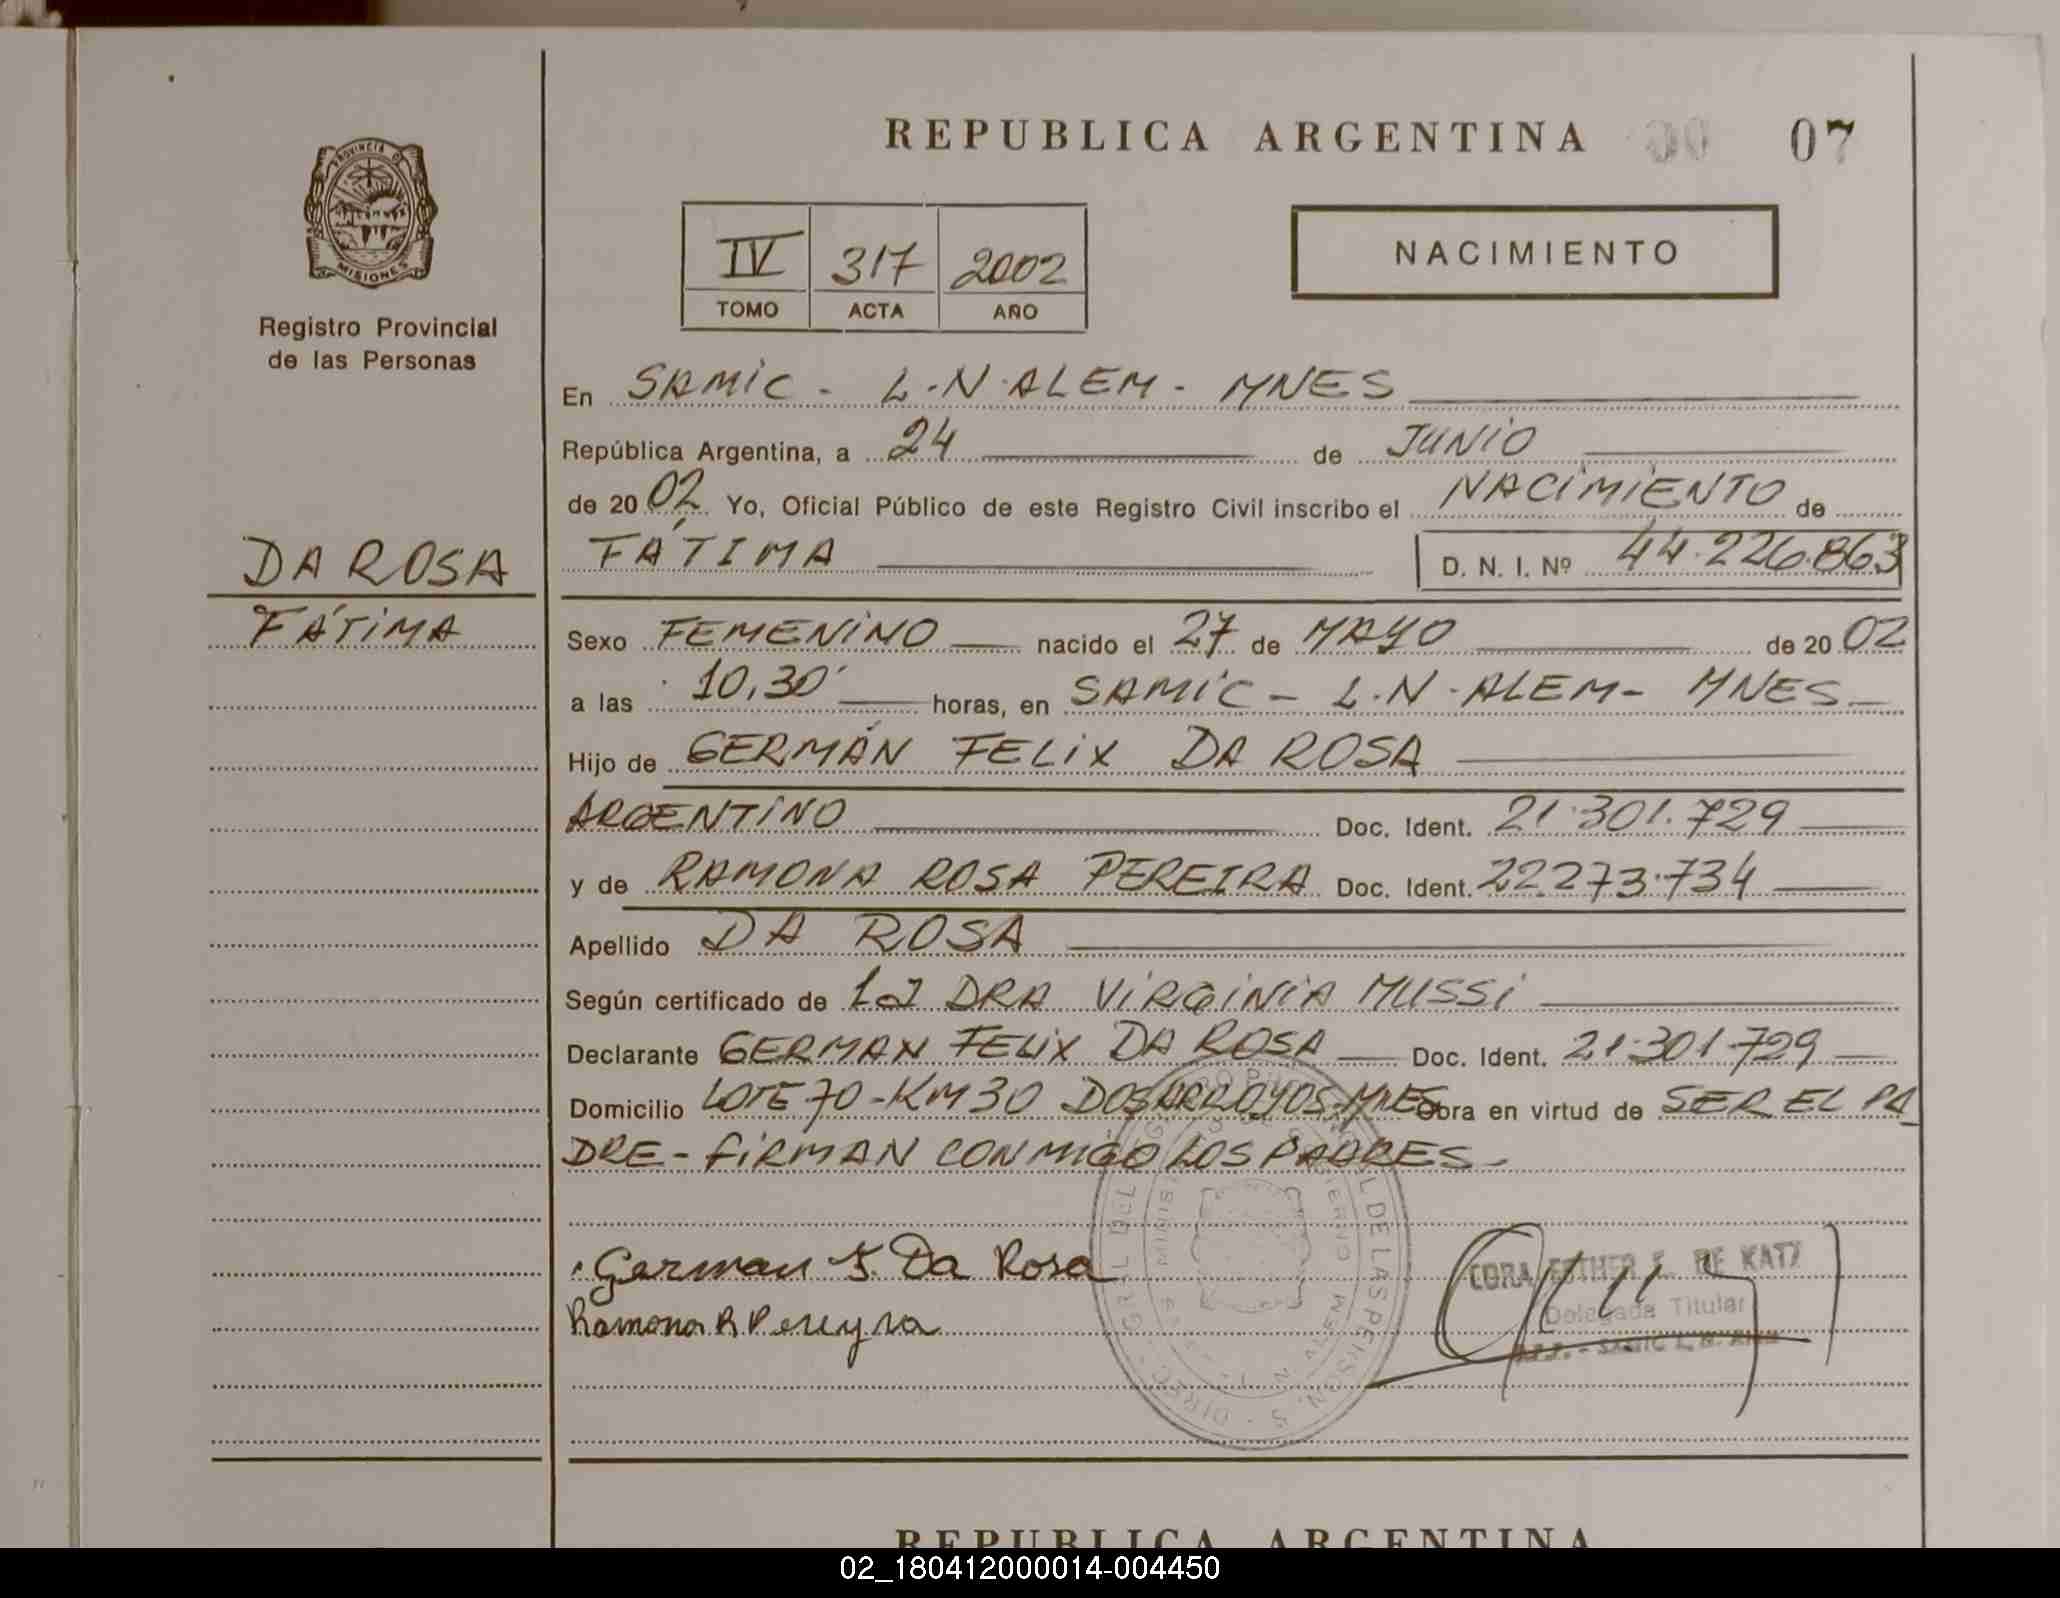 REPUBLICA ARGENTINA 00 07
PROVINCIA D
MISIONES
Registro Provincial
de las Personas
IV 317 2002
TOMO ACTA AÑO
NACIMIENTO
En SAMIC - L.N.ALEM - MNES
República Argentina, a 24 de JUNIO
de 2002 Yo, Oficial Público de este Registro Civil inscribo el NACIMIENTO de
DA ROSA
FÁTIMA
FÁTIMA D. N. I. Nº 44.226.863
Sexo FEMENINO nacido el 27 de MAYO de 2002
a las 10,30' horas, en SAMIC - L.N.ALEM - MNES
Hijo de GERMÁN FELIX DA ROSA
ARGENTINO Doc. Ident. 21.301.729
y de RAMONA ROSA PEREIRA Doc. Ident. 22.273.734
Apellido DA ROSA
Según certificado de LA DRA VIRGINIA MUSSI
Declarante GERMAN FELIX DA ROSA Doc. Ident. 21.301.729
Domicilio LOTE 70 - KM 30 DOS ARROYOS - MNES Obra en virtud de SER EL PA
DRE - FIRMAN CONMIGO LOS PADRES -
German F. Da Rosa
Ramona R Pereyra
CORA ESTHER DE KATZ
Delegada Titular
SAMIC L. N. ALEM
REPUBLICA ARGENTINA
02_180412000014-004450